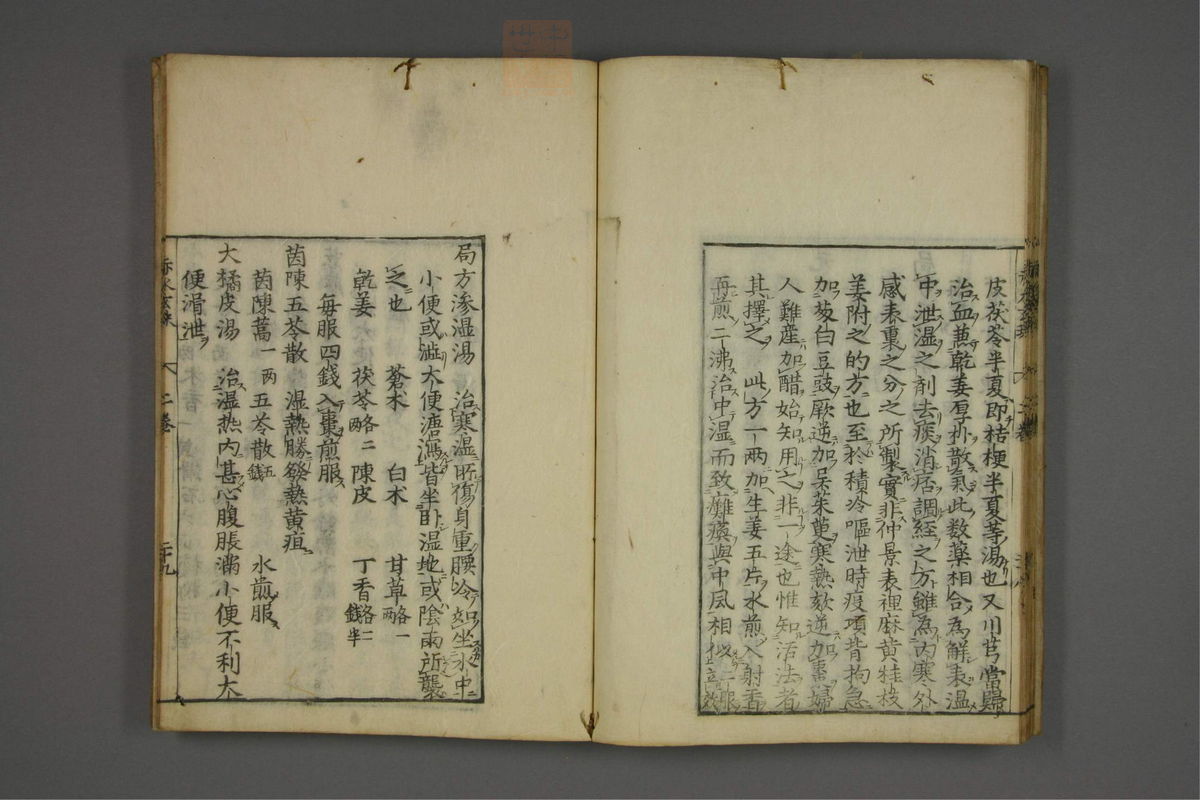 皮茯苓半夏即桔梗半夏等湯也又川芎當歸
治血蒸乾姜厚朴散氣此数藥相合為解表温
中泄湿之剤去痰消痞調経之方雖為内寒外
感表裏之分之所製實非仲景表裡麻黄桂枝
姜附之的方也至於積冷嘔泄時疫項背拘急
加葱白豆豉厥逆加呆茱萸寒熱欬逆加棗婦
人難産加醋始知用之非一途也惟知活法者
其擇之 此方一両加生姜五片水煎入射香
再煎二沸治中湿而致癱瘓與中風相似二服立效
局方渗湿湯 治寒湿所傷身重腰冷如坐水中
小便或澁大便溏瀉皆坐卧湿地或陰雨所襲
之也 蒼术 白术 甘草略一両
乾姜 茯苓略二両 陳皮 丁香各二銭半
毎服四錢入棗煎服
茵陳五苓散 湿熱勝發熱黄疸
茵陳蒿一両 五苓散五銭 水煎服
大橘皮湯 治湿热内甚心腹脹満小便不利大
便滑泄
二卷
二十九